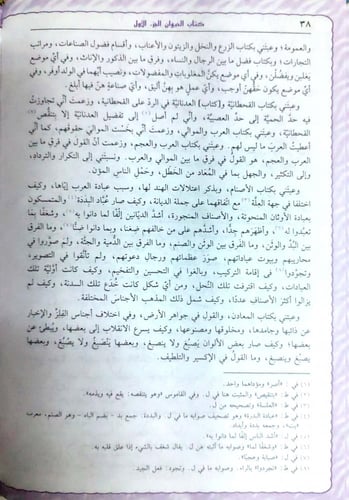 ٣٨ كتاب الحيوان الجزء الأول
والعمومة؛ وعبتني بكتاب الزرع والنخل والزيتون والأعناب، وأقسام فضول الصناعات، ومراتب
التجارات؛ وبكتاب فضل ما بين الرجال والنساء، وفرق ما بين الذكور والإناث، وفي أي موضع
يغلبن ويفضلن، وفي أي موضع يكن المغلوبات والمفضولات، ونصيب أيهما في الولد أوفر، وفي
أي موضع يكون حقهن أوجب، وأي عمل هو بهن أليق، وأي صناعة هن فيها أبلغ.
وعبتني بكتاب القحطانية و[كتاب] العدنانية في الرد على القحطانية، وزعمت أني تجاوزت
فيه حد الحمية إلى حد العصبية، وأني لم أصل (١) إلى تفضيل العدنانية إلا بتنقص (٢)
القحطانية، وعبتني بكتاب العرب والموالي، وزعمت أني بخست الموالي حقوقهم، كما أني
أعطيت العرب ما ليس لهم. وعبتني بكتاب العرب والعجم، وزعمت أن القول في فرق ما بين
العرب والعجم، هو القول في فرق ما بين الموالي والعرب. ونسبتني إلى التكرار والترداد،
وإلى التكثير، والجهل بما في المعاد من الخطل، وحمل الناس المؤن.
وعبتني بكتاب الأصنام، وبذكر اعتلالات الهند لها، وسبب عبادة العرب إياها، وكيف
اختلفا في جهة العلة (٣) مع اتفاقهما على جملة الديانة، وكيف صار عباد البددة (٤) والمتمسكون
بعبادة الأوثان المنحوتة، والأصنام المنجورة، أشد الديانين إلفا لما دانوا به (٥)، وشغفا بما
تعبدوا له (٦)، وأظهرهم جدا، وأشدهم على من خالفهم ضغنا، وبما دانوا ضنا (٧)، وما الفرق
بين البد والوثن، وما الفرق بين الوثن والصنم، وما الفرق بين الدمية والجثة، ولم صوروا في
محاريبهم وبيوت عباداتهم، صور عظمائهم ورجال دعوتهم، ولم تأنقوا في التصوير،
وتجودوا (٨) في إقامة التركيب، وبالغوا في التحسين والتفخيم، وكيف كانت أولية تلك
العبادات، وكيف اقترفت تلك النحل، ومن أي شكل كانت خدع تلك السدنة، وكيف لم
يزالوا أكثر الأصناف عددا، وكيف شمل ذلك المذهب الأجناس المختلفة.
وعبتني بكتاب المعادن، والقول في جواهر الأرض، وفي اختلاف أجناس الفلز والإخبار
عن ذائبها وجامدها، ومخلوقها ومصنوعها، وكيف يسرع الانقلاب إلى بعضها، ويبطئ عن
بعضها؛ وكيف صار بعض الألوان يصبغ ولا ينصبغ، وبعضها ينصبغ ولا يصبغ، وبعضها
يصبغ وينصبغ، وما القول في الإكسير والتلطيف.
(٣) في ط: «العلمة» وتصحيحه من ل.
(٥) في ل: «أشد الناس إلفا لما دانوا به».